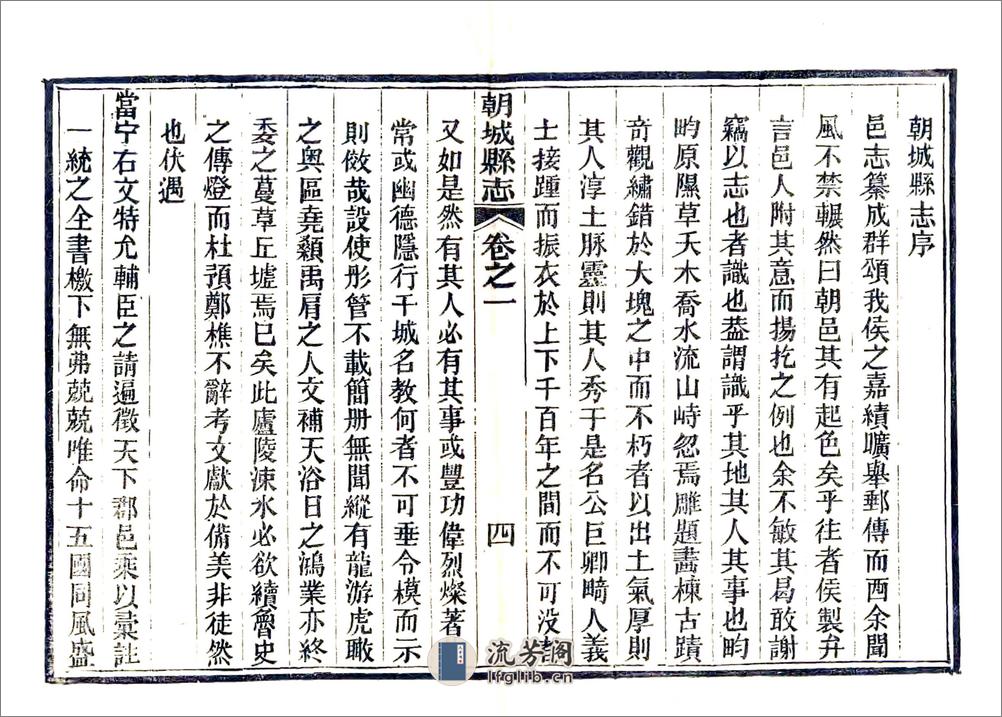 朝城縣志序
邑志纂成群頌我侯之嘉績曠舉郵傳而西余聞
風不禁輾然曰朝邑其有起色矣乎往者侯製弁
言邑人附其意而揚扢之例也余不敏其曷敢謝
竊以志也者識也葢謂識乎其地其人其事也畇
畇原隰草夭木喬水流山峙忽焉雕題畵棟古蹟
奇觀繡錯於大塊之中而不朽者以出土氣厚則
其人淳土脉靈則其人秀于是名公巨卿畸人義
士接踵而振衣於上下千百年之間而不可没者
朝城縣志 卷之一 四
又如是然有其人必有其事或豐功偉烈燦著
常或幽德隱行干城名教何者不可垂令模而示
則傚哉設使彤管不載簡册無聞縱有龍游虎瞰
之奥區堯顙禹肩之人文補天浴日之鴻業亦終
委之蔓草丘墟焉已矣此廬陵涑水必欲續魯史
之傳燈而杜預鄭樵不辭考文獻於備美非徒然
也伏遇
當宁右文特允輔臣之請遍徵天下郡邑乘以彚註
一統之全書檄下無弗兢兢唯命十五國同風盛
流芳閣
lfglib.cn